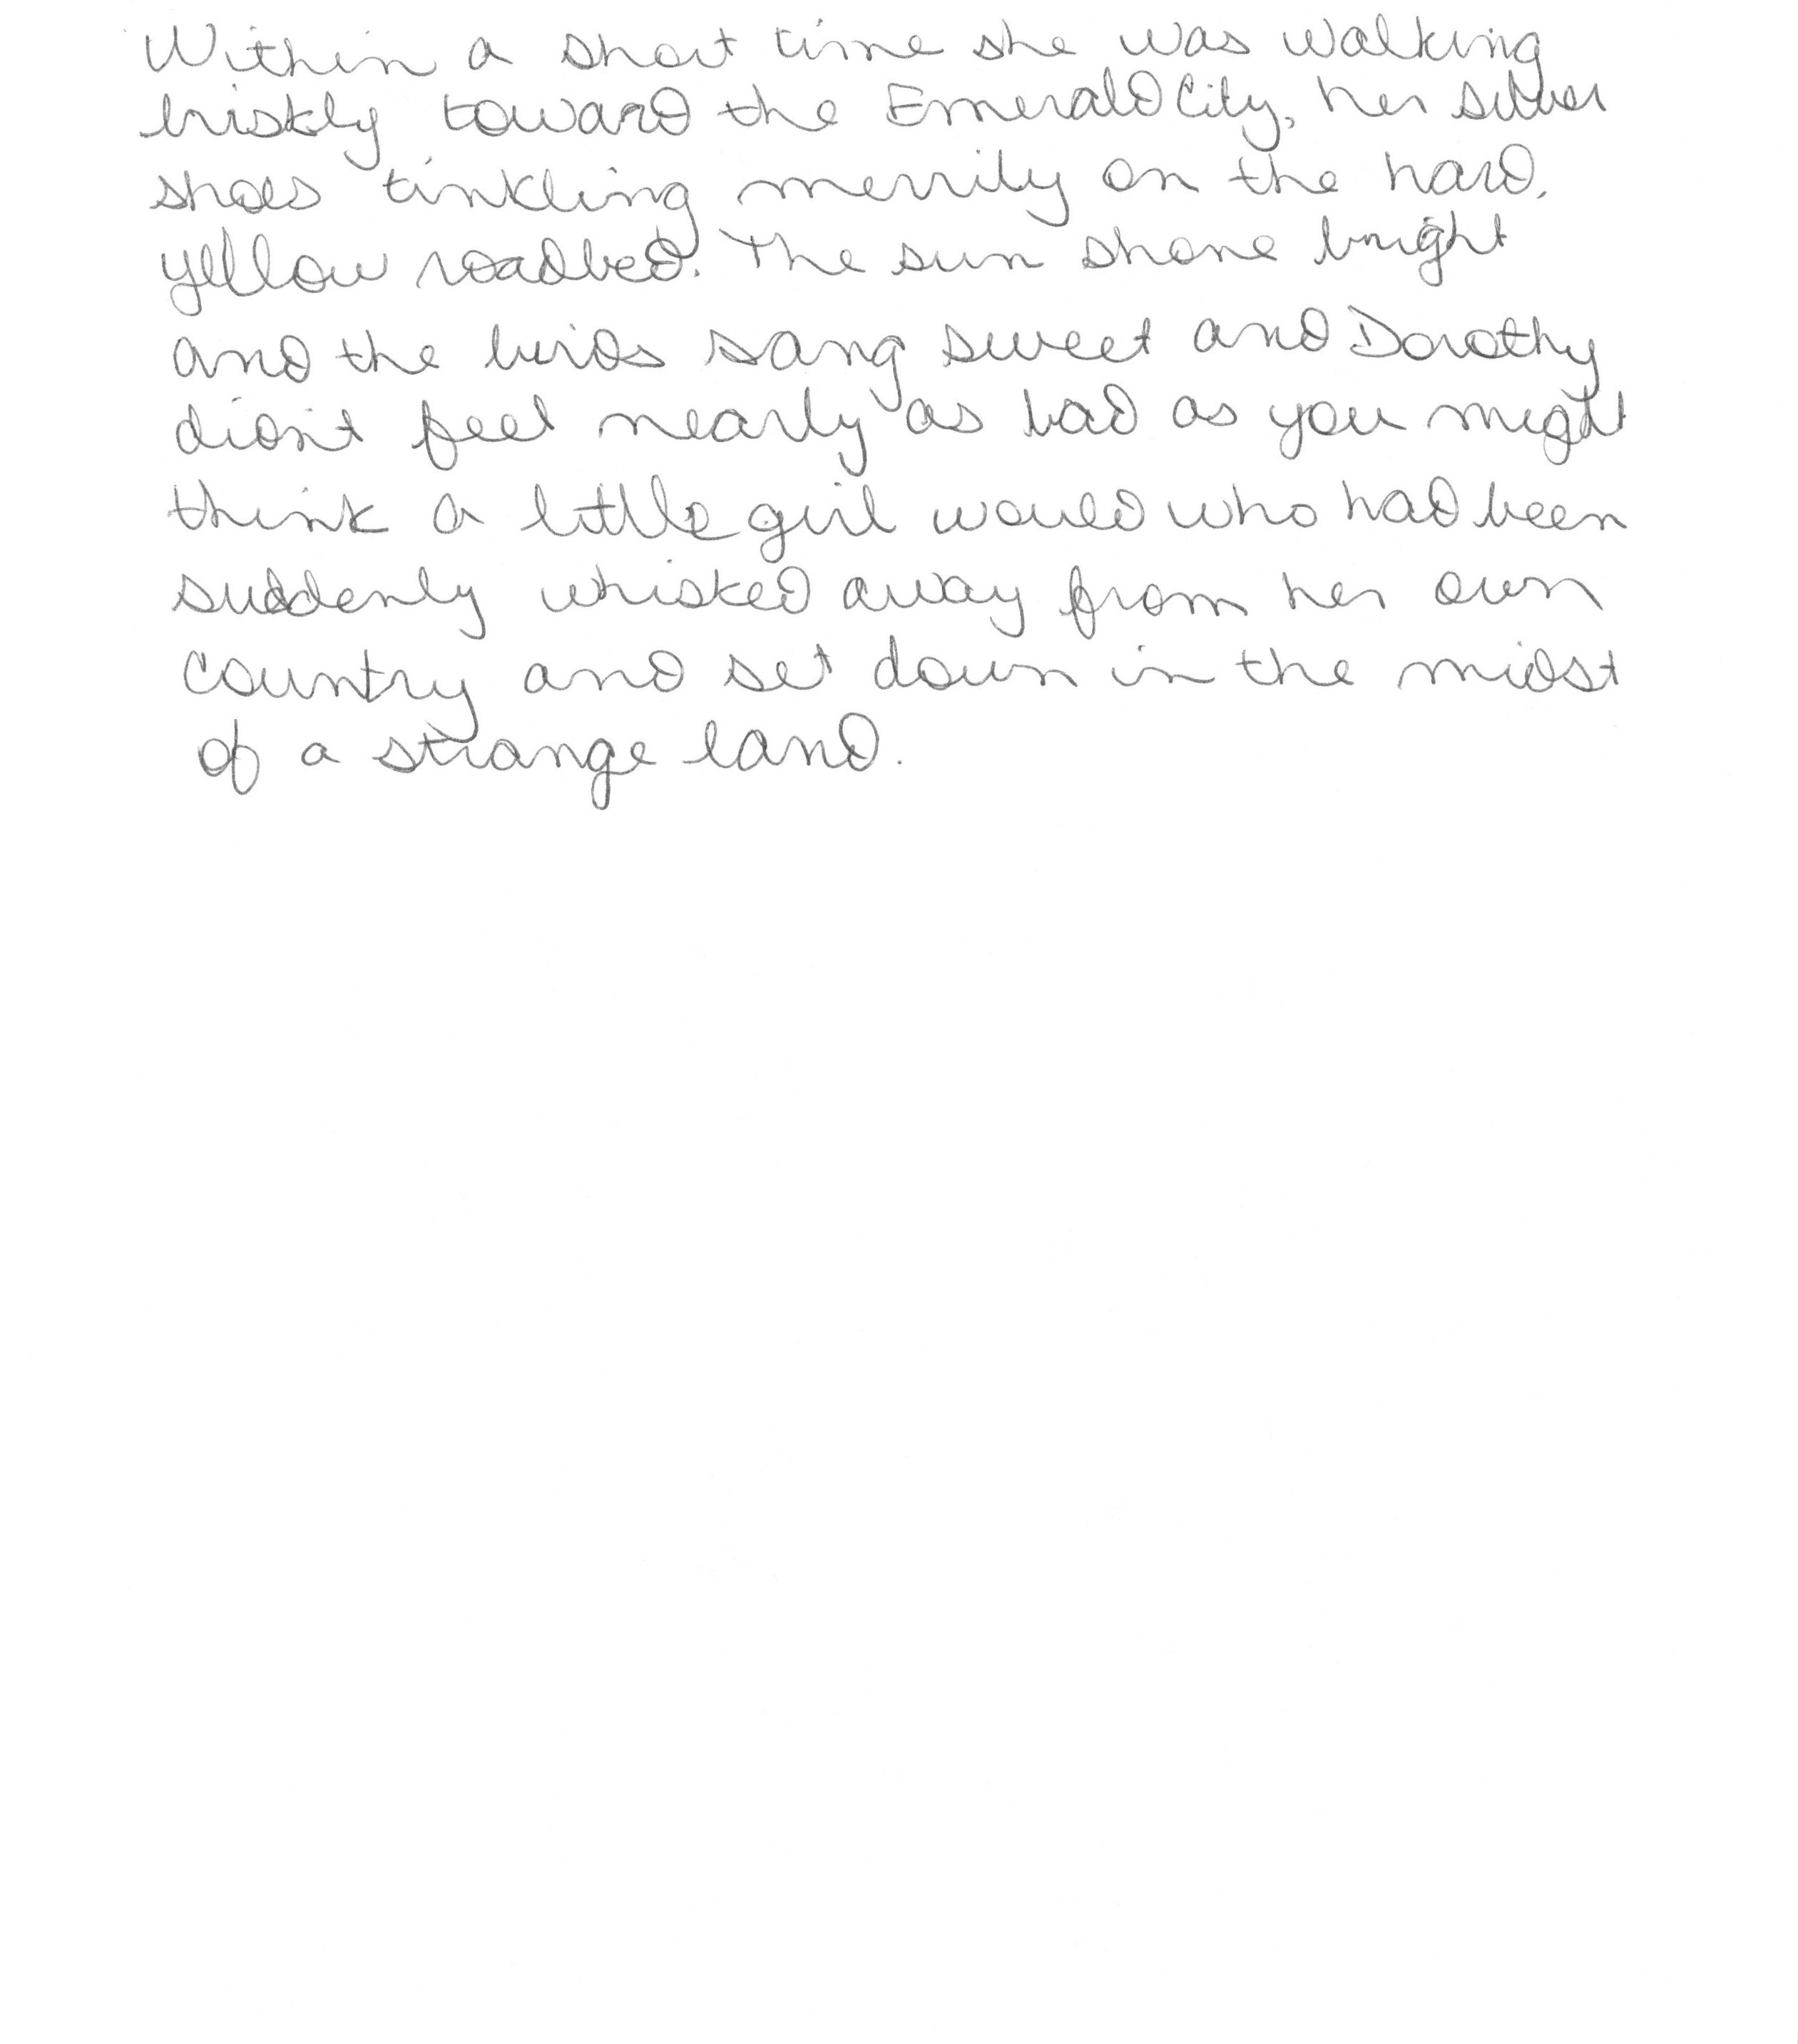 Within a short time she was walking
briskly toward the Emerald City, her silver
shoes tinkling merrily on the hard,
yellow roadbed. The sun shone bright
and the birds sang sweet and Dorothy
didn't feel nearly as bad as you might
think a little girl would who had been
suddenly whisked away from her own
country and set down in the midst
of a strange land.